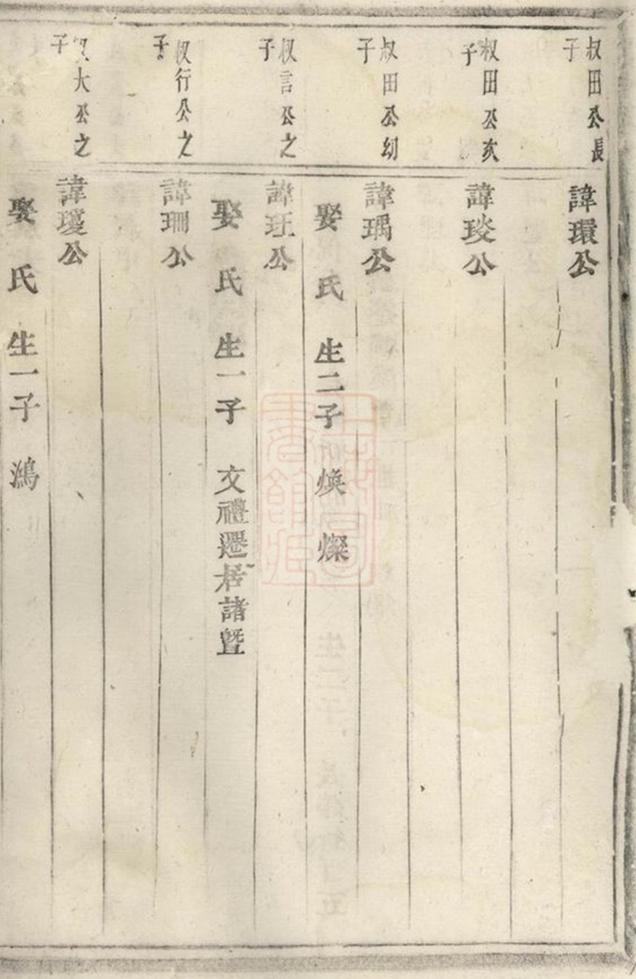 叔田公長子
諱環公
叔田公次子
諱琰公
叔田公幼子
諱瑀公
娶 氏 生二子 煥 燦
叔言公之子
諱玨公
娶 氏 生一子 文禮遷居諸暨
叔行公之子
諱珊公
叔大公之子
諱瓊公
娶 氏 生一子 鴻